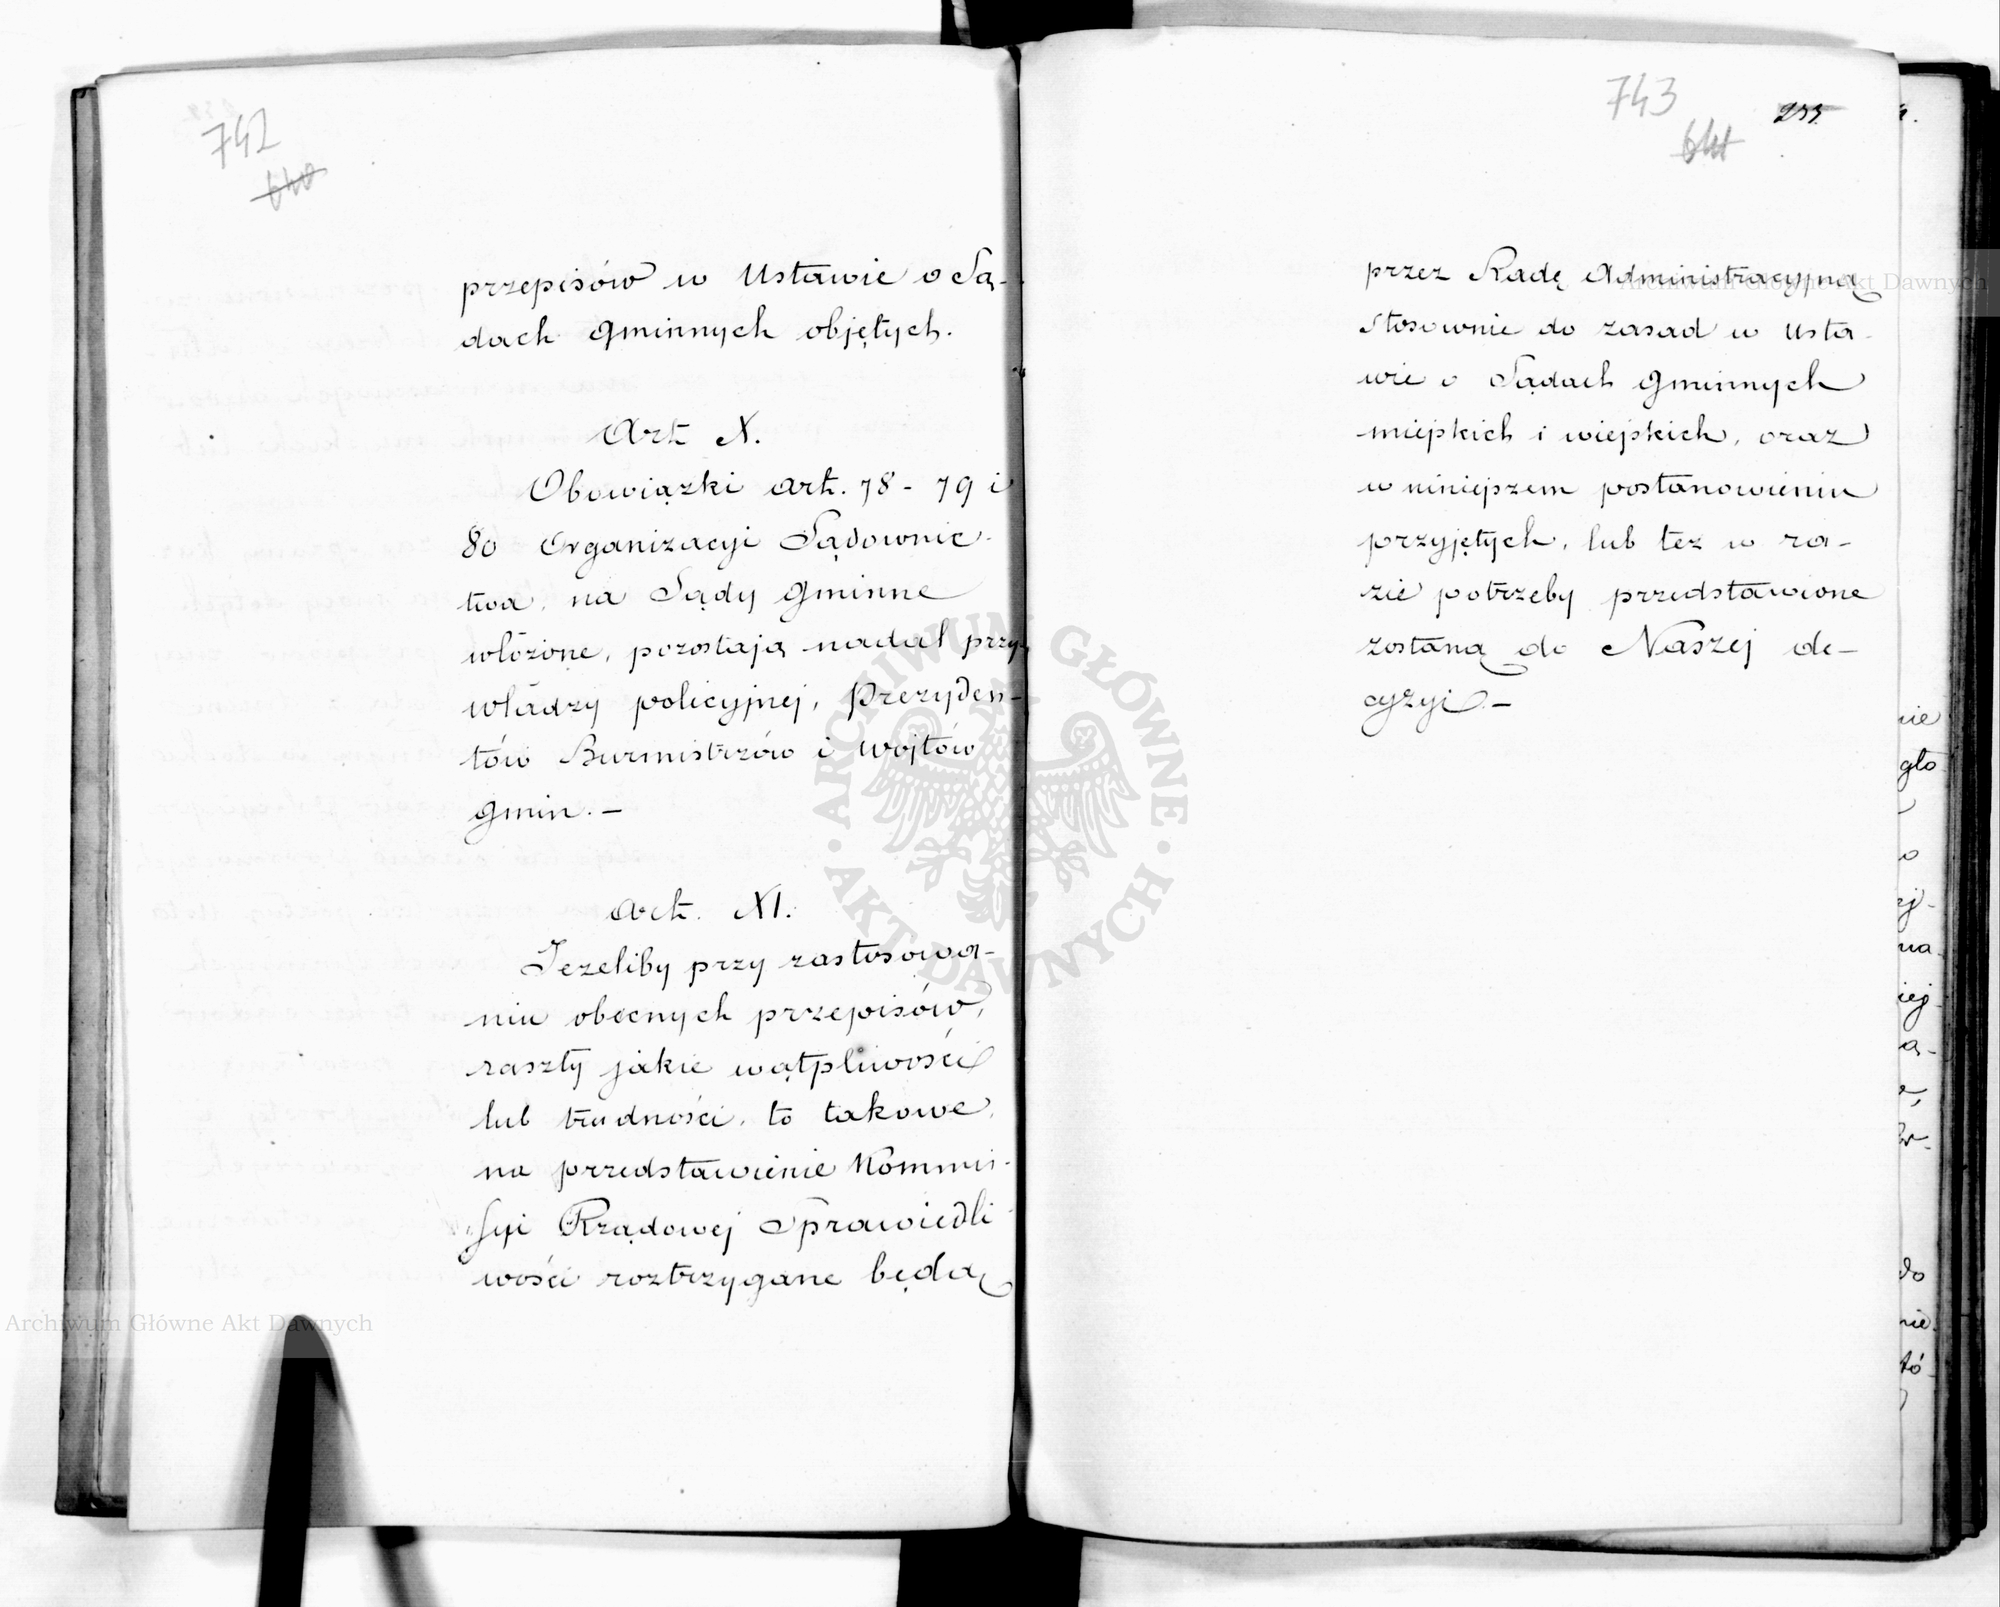 742
640
przepisów w Ustawie o Są-
dach gminnych objętych.
Art. X.
Obowiązki art. 78 - 79 i
80 Organizacyi Sądownic-
twa, na Sądy gminne
włożone, pozostają nadal przy
władzy policyjnej, Prezyden-
tów Burmistrzów i wojtów
gmin. –
Art. XI.
Jezeliby przy zastosowa-
niu obecnych przepisów,
zaszły jakie wątpliwości
lub trudności, to takowe,
na przedstawienie Kommis-
syi Rządowej Sprawiedli-
wości roztrzygane będą
743
641
255.
przez Radę Administracyjną
stosownie do zasad w Usta-
wie o Sądach gminnych
miejskich i wiejskich, oraz
w niniejszem postanowieniu
przyjętych, lub tez w ra-
zie potrzeby przedstawione
zostaną do Naszej de-
cyzyi. –
nie
gło
o
ej-
na
iej
a-
do
nie
tó
Archiwum Główne Akt Dawnych
Archiwum Główne Akt Dawnych
ARCHIWUM GŁÓWNE
AKT DAWNYCH